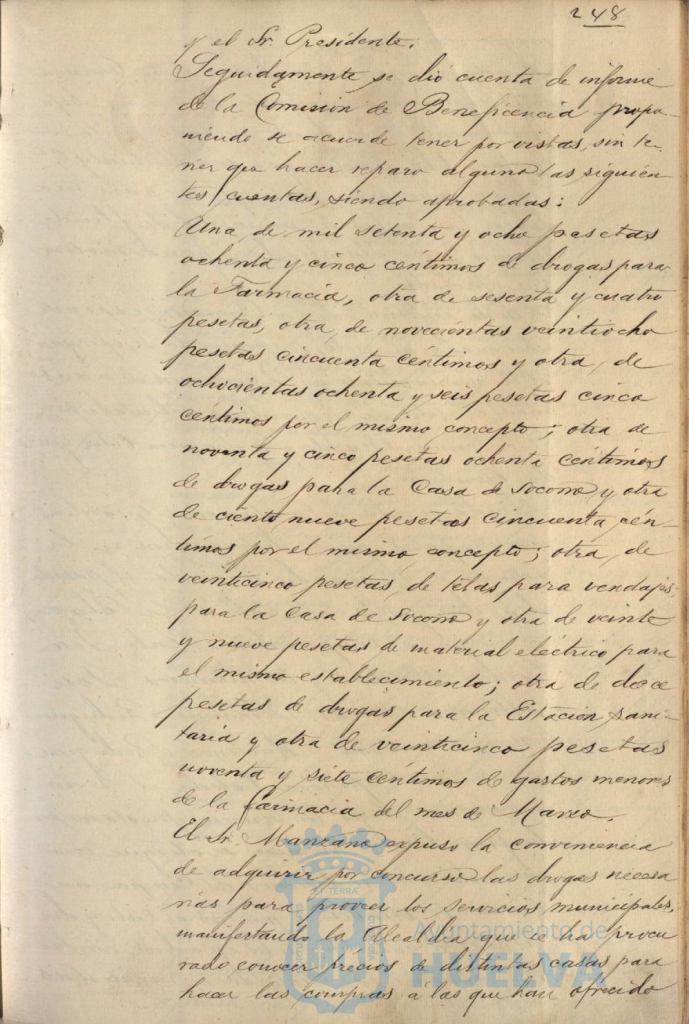 248
y el Sr. Presidente.
Seguidamente se dió cuenta de informe
de la Comisión de Beneficencia propo-
niendo se acuerde tener por vistas, sin te-
ner que hacer reparo alguno las siguien-
tes cuentas, siendo aprobadas:
Una de mil setenta y ocho pesetas
ochenta y cinco céntimos de drogas para
la Farmacia, otra de sesenta y cuatro
pesetas, otra, de novecientas veintiocho
pesetas cincuenta céntimos y otra, de
ochocientas ochenta y seis pesetas cinco
céntimos por el mismo concepto; otra de
noventa y cinco pesetas ochenta céntimos
de drogas para la Casa de Socorro y otra
de ciento nueve pesetas cincuenta cén-
timos por el mismo concepto; otra, de
veinticinco pesetas, de telas para vendajes
para la Casa de Socorro y otra de veinte
y nueve pesetas de material eléctrico para
el mismo establecimiento; otra de doce
pesetas de drogas para la Estación Sani-
taria y otra de veinticinco pesetas
noventa y siete céntimos de gastos menores
de la farmacia del mes de Marzo.
El Sr. Manzano expuso la conveniencia
de adquirir por concurso las drogas necesa
rias para proveer los servicios municipales,
manifestando la Alcaldía que se ha procu
rado conocer precios de distintas casas para
hacer las compras á las que han ofrecido
Ayuntamiento de
HUELVA